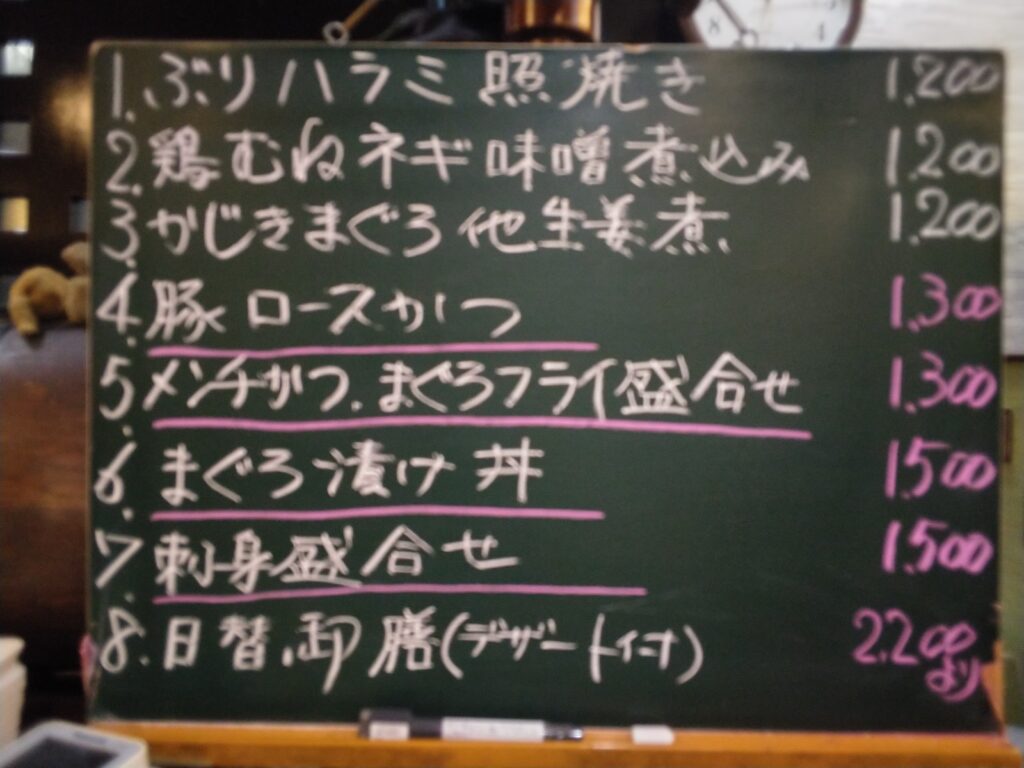 1. ぶりハラミ 照焼き 1.200
2. 鶏むねネギ味噌煮込み 1.200
3. かじきまぐろ他生姜煮 1.200
4. 豚ロースかつ 1.300
5. メンチかつ.まぐろフライ盛合せ 1.300
6. まぐろ漬け丼 1.500
7. 刺身盛合せ 1.500
8. 日替.御膳(デザート付) 2.200より